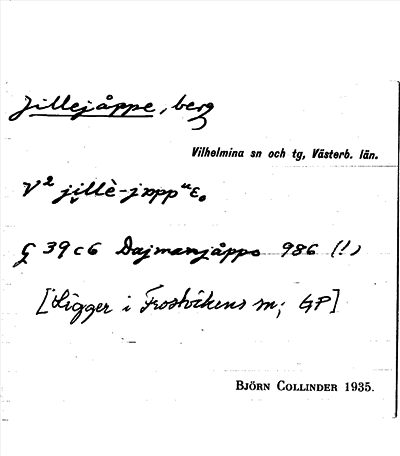 Jillejåppe, berg
Vilhelmina sn och tg, Västerb. län.
V² ji̮llè-jɒppᵘɛ.
G 39 c 6 Dajmanjåppe 986 (!)
[Ligger i Frostvikens sn; GP]
BJÖRN COLLINDER 1935.